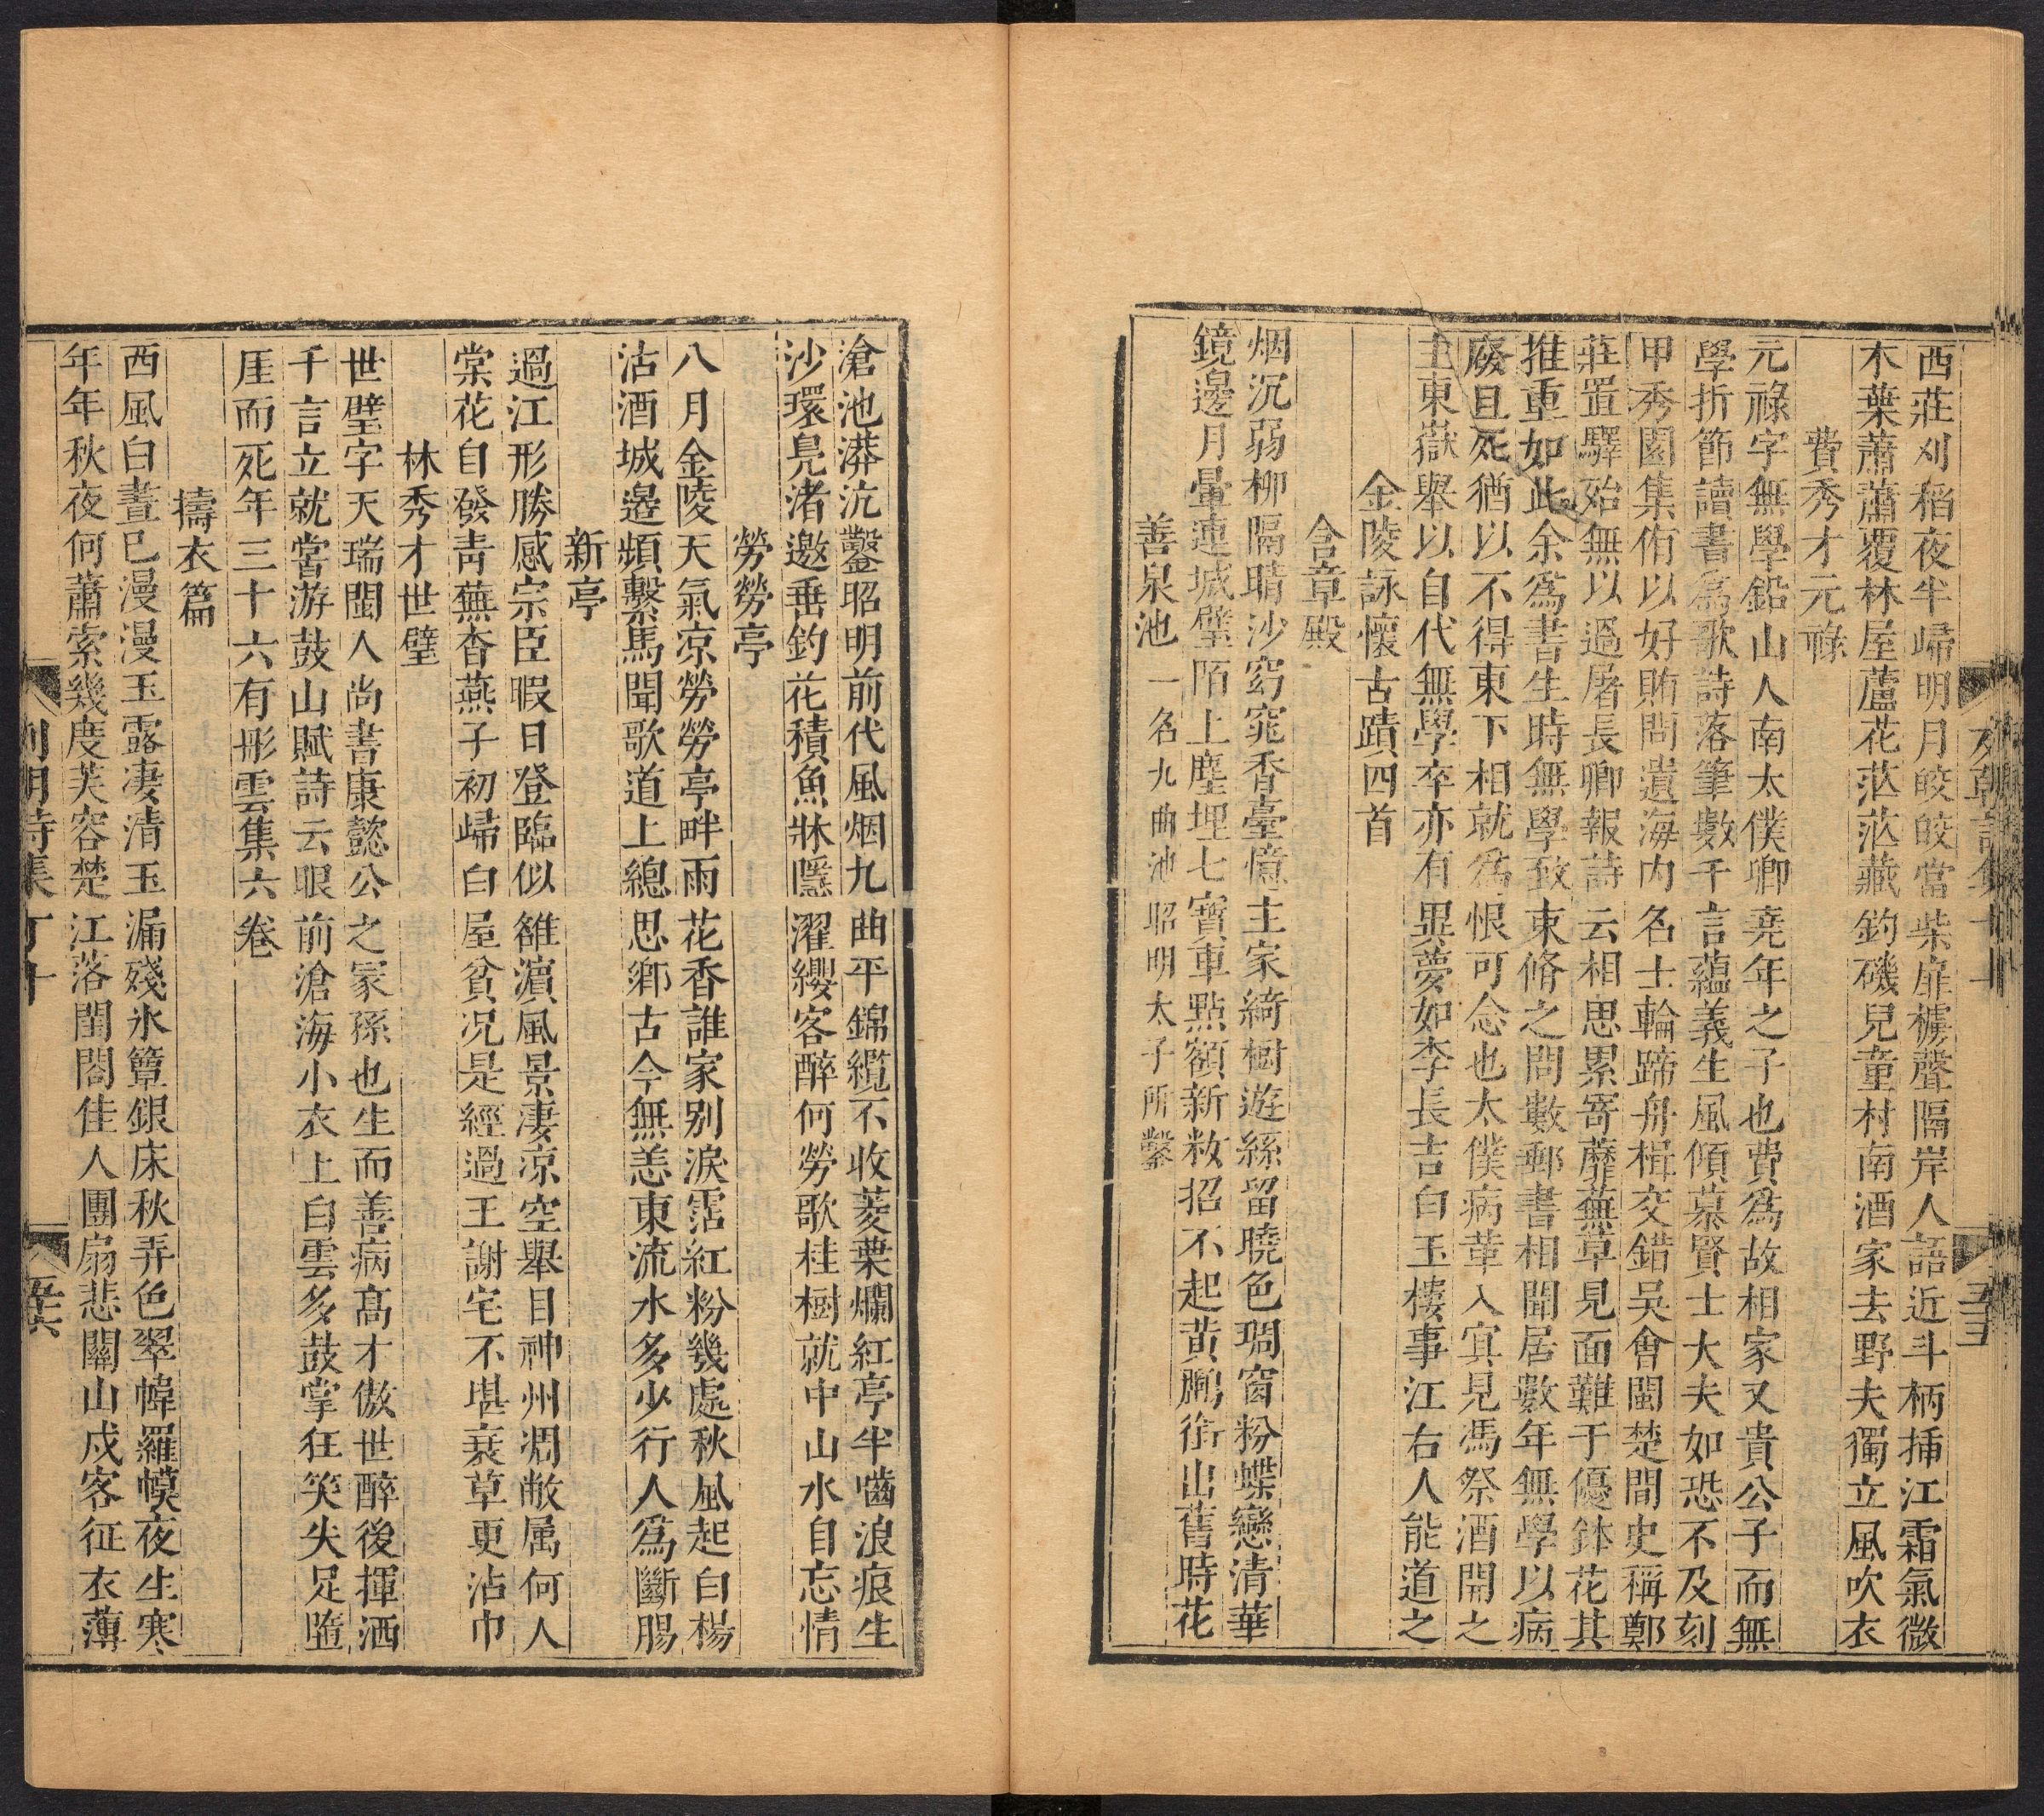 西莊刈稻夜半歸明月皎皎當柴扉櫓聲隔岸人語近斗柄揷江霜氣微
木葉蕭蕭覆林屋蘆花茫茫藏釣磯兒童村南酒家去野夫獨立風吹衣
費秀才元祿
元祿字無學鉛山人南太僕卿堯年之子也費爲故相家又貴公子而無
學折節讀書爲歌詩落筆數千言蘊義生風傾慕賢士大夫如恐不及刻
甲秀園集侑以好賄問遺海内名士輪蹄舟楫交錯吳會閩楚間史稱鄭
莊置驛始無以過屠長卿報詩云相思累寄蘼蕪草見面難于優鉢花其
推重如此余爲書生時無學致束脩之問數郵書相聞居數年無學以病
廢且死猶以不得東下相就爲恨可念也太僕病革入冥見馮祭酒開之
主東嶽舉以自代無學卒亦有異夢如李長吉白玉樓事江右人能道之
金陵詠懷古蹟四首
含章殿
烟沉弱柳隔晴沙窈窕香臺憶主家綺樹遊絲留曉色琱窗粉蝶戀清華
鏡邊月暈連城璧陌上塵埋七寶車點額新粧招不起黄鸝銜出舊時花
善泉池 一名九曲池昭明太子所鑿
滄池漭沆鑿昭明前代風烟九曲平錦纜不收菱葉爛紅亭半嚙浪痕生
沙環鳧渚邀垂釣花積魚牀隱濯纓客醉何勞歌桂樹就中山水自忘情
勞勞亭
八月金陵天氣凉勞勞亭畔雨花香誰家别淚霑紅粉幾處秋風起白楊
沽酒城邉頻繫馬聞歌道上總思鄉古今無恙東流水多少行人爲斷腸
新亭
過江形勝感宗臣暇日登臨似雒濵風景凄凉空舉目神州凋敝属何人
棠花自發靑蕪杳燕子初歸白屋貧况是經過王謝宅不堪衰草更沾巾
林秀才世璧
世璧字天瑞閩人尚書康懿公之冢孫也生而善病髙才傲世醉後揮洒
千言立就嘗游鼓山賦詩云眼前滄海小衣上白雲多鼓掌狂笑失足墮
厓而死年三十六有彤雲集六卷
擣衣篇
西風白晝已漫漫玉露凄清玉漏殘氷簟銀床秋弄色翠幃羅幙夜生寒
年年秋夜何蕭索幾度芙容楚江落閨閤佳人團扇悲關山戍客征衣薄